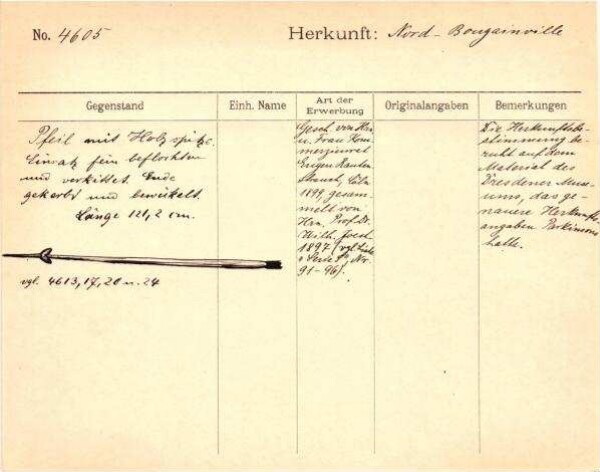 No. 4605
Herkunft: Nord-Bougainville
Gegenstand
Einh. Name
Art der
Erwerbung
Originalangaben
Bemerkungen
Pfeil mit Holzspitze.
Einsatz fein beflochten
und verkittet. Ende
gekerbt und bewickelt.
Länge 121,2 cm.
vgl. 4613,17,20 u. 24
Gesch. von Hrn
u. Frau Kom
merzienrat
Eugen Rauten
strauch, Cöln
1899, gesam-
melt von
Hrn. Prof. Dr.
Wilh. Joest
1897 (vgl. Liste
Nr.
91-96).
Die Herkunftsbe-
stimmung be-
ruht auf dem
Material des
Dresdener Muse-
ums, das ge-
nauere Herkunfts
angaben Parkinsons
hatte.